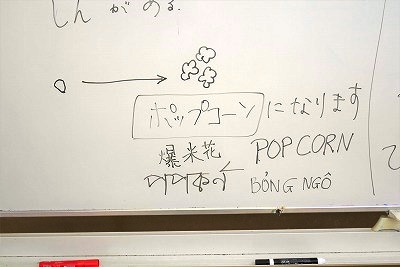 しんがのる.
ポップコーンになります
爆米花 POPCORN
BỎNG NGÔ